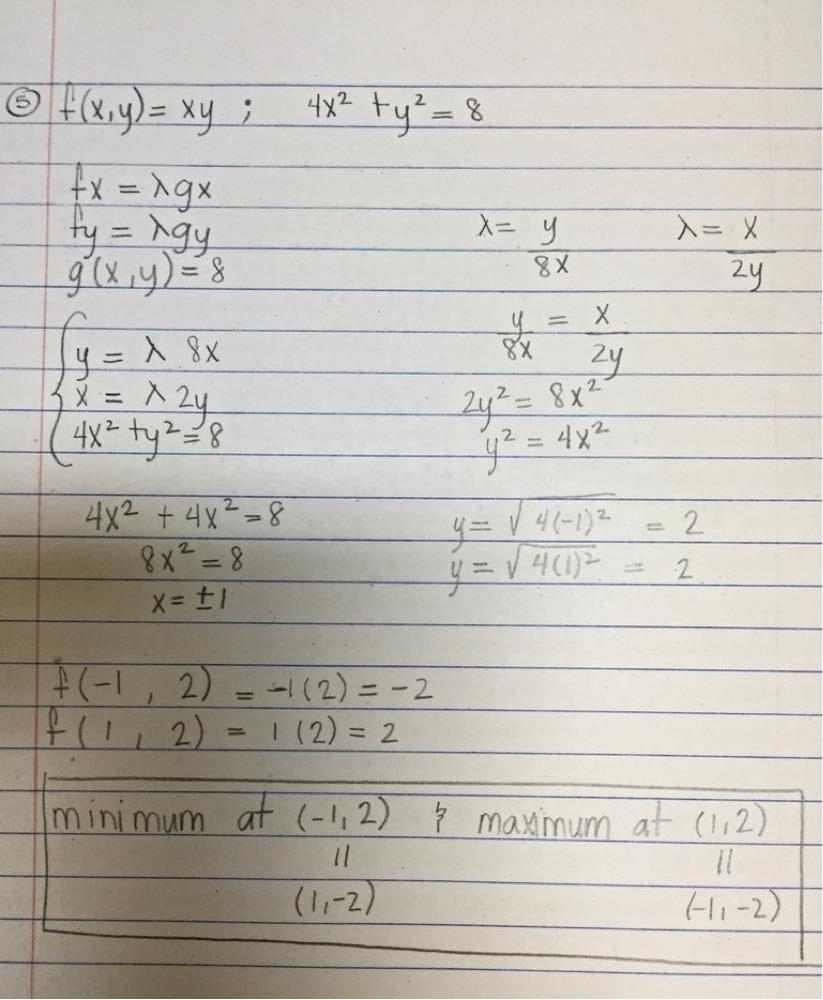 ⑤ f(x,y) = xy ; 4x² + y² = 8
fx = λgx
fy = λgy
g(x,y) = 8
λ = y/8x λ = x/2y
y = λ 8x
x = λ 2y
4x² + y² = 8
y/8x = x/2y
2y² = 8x²
y² = 4x²
4x² + 4x² = 8
8x² = 8
x = ±1
y = √4(-1)² = 2
y = √4(1)² = 2
f(-1, 2) = -1(2) = -2
f(1, 2) = 1(2) = 2
minimum at (-1,2) & maximum at (1,2)
" "
(1,-2) (-1,-2)